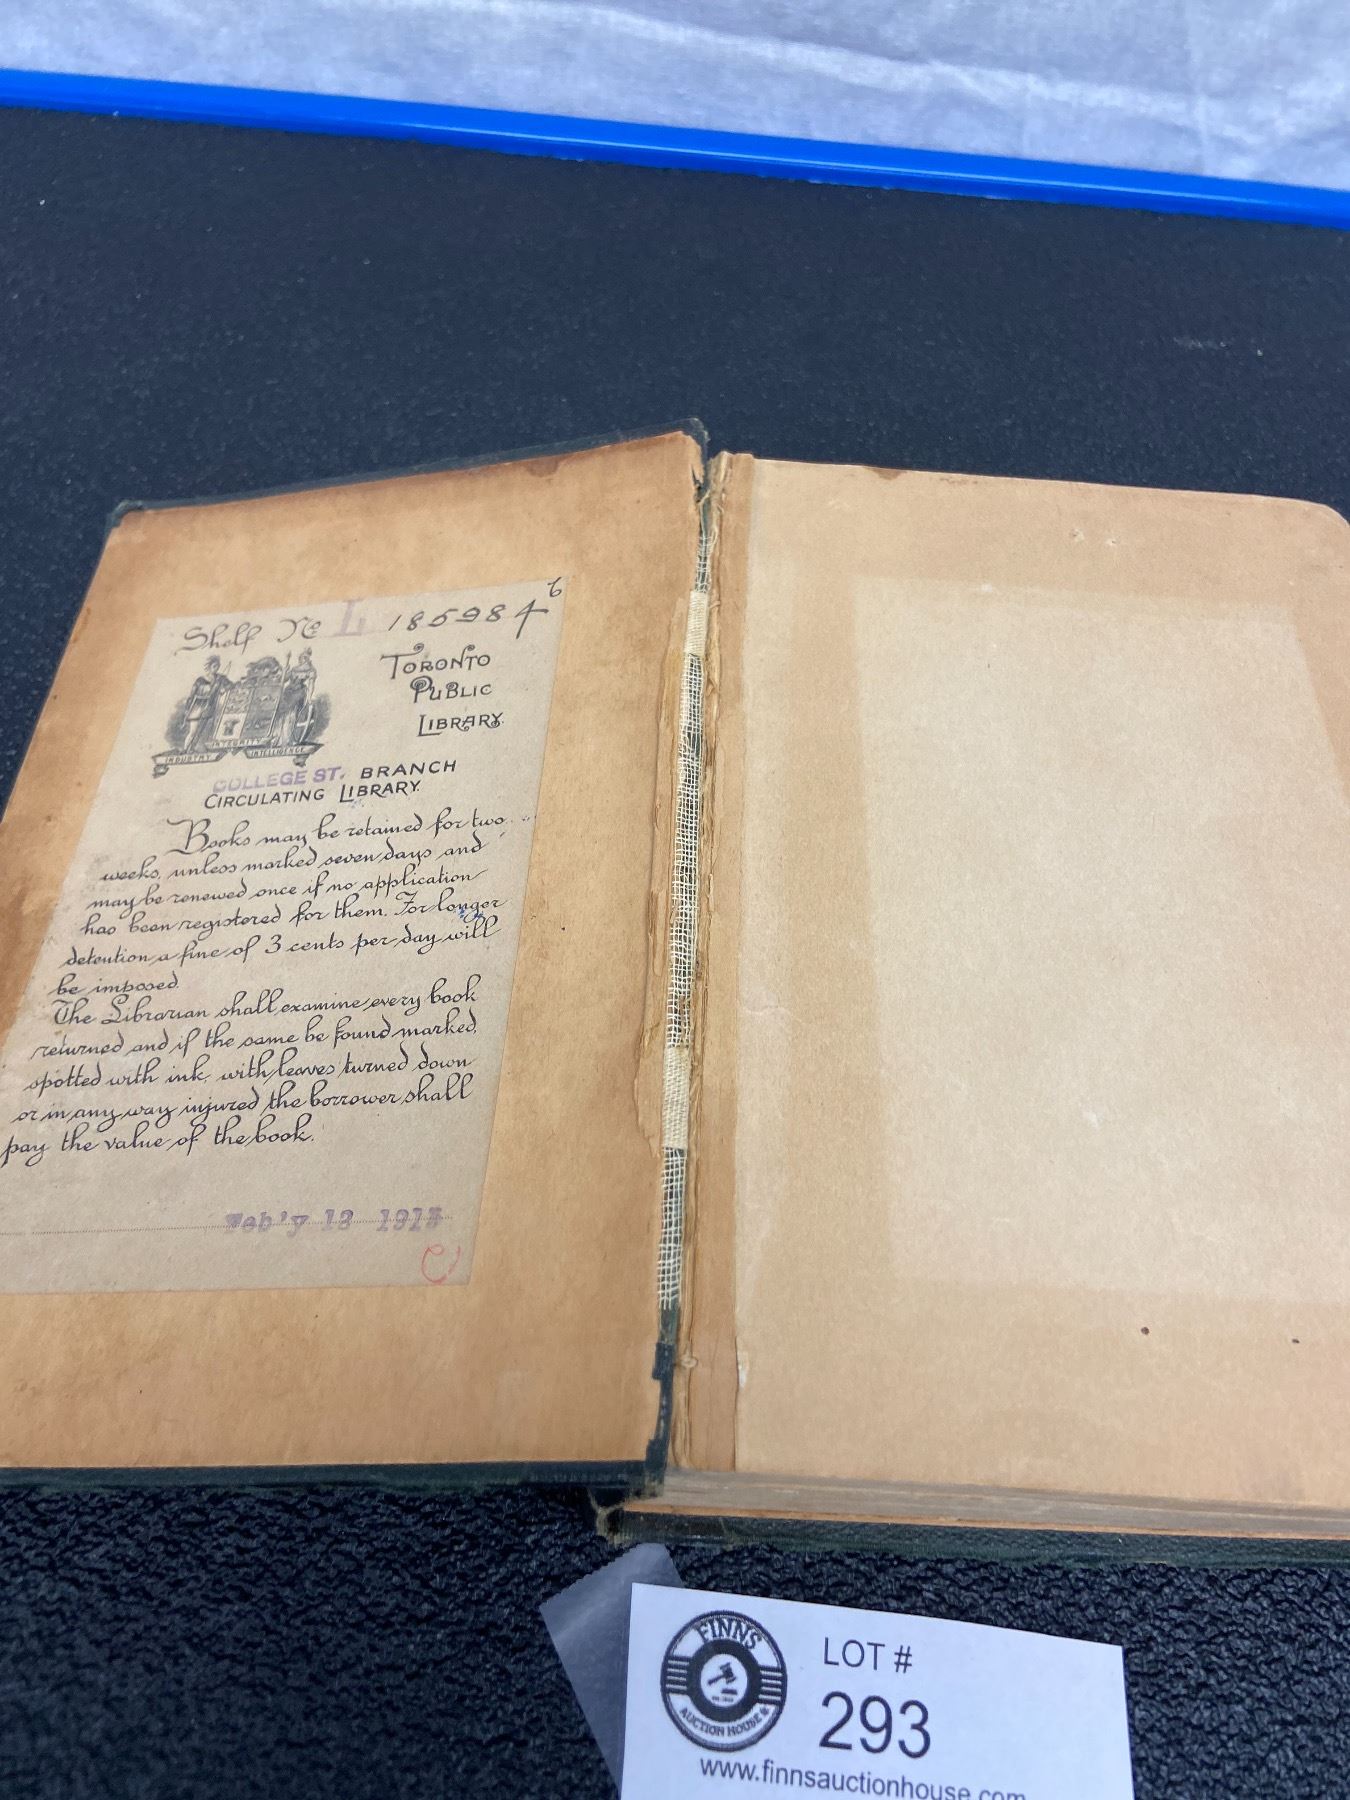 Shelf No L 185984 6
TORONTO
PUBLIC
LIBRARY.
INDUSTRY INTEGRITY INTELLIGENCE
COLLEGE ST. BRANCH
CIRCULATING LIBRARY.
Books may be retained for two
weeks, unless marked seven days and
may be renewed once if no application
has been registered for them. For longer
detention a fine of 3 cents per day will
be imposed.
The Librarian shall examine every book
returned and if the same be found marked,
spotted with ink, with leaves turned down
or in any way injured the borrower shall
pay the value of the book.
Feb'y 13 191
FINNS
AUCTION HOUSE
LOT #
293
www.finnsauctionhouse.com